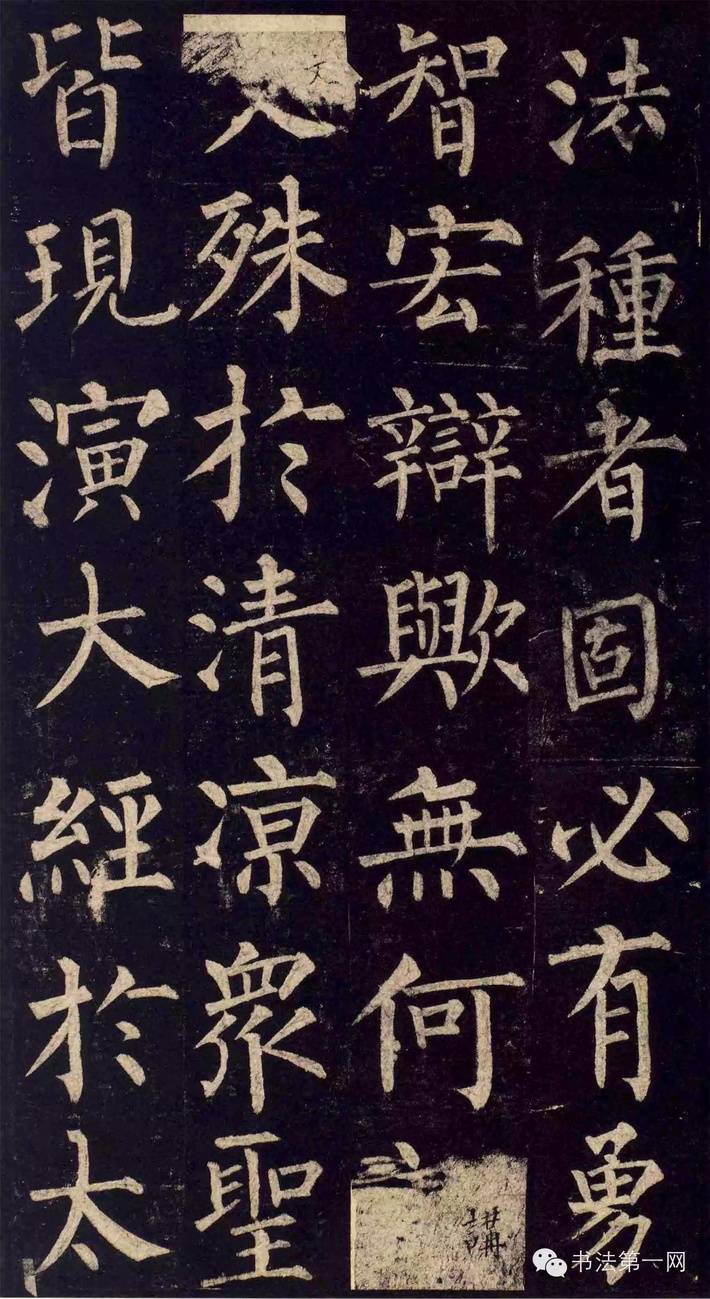 法種者固必有勇
智宏辯歟無何
講
文殊於清涼衆聖
皆現演大經於太
书法第一网